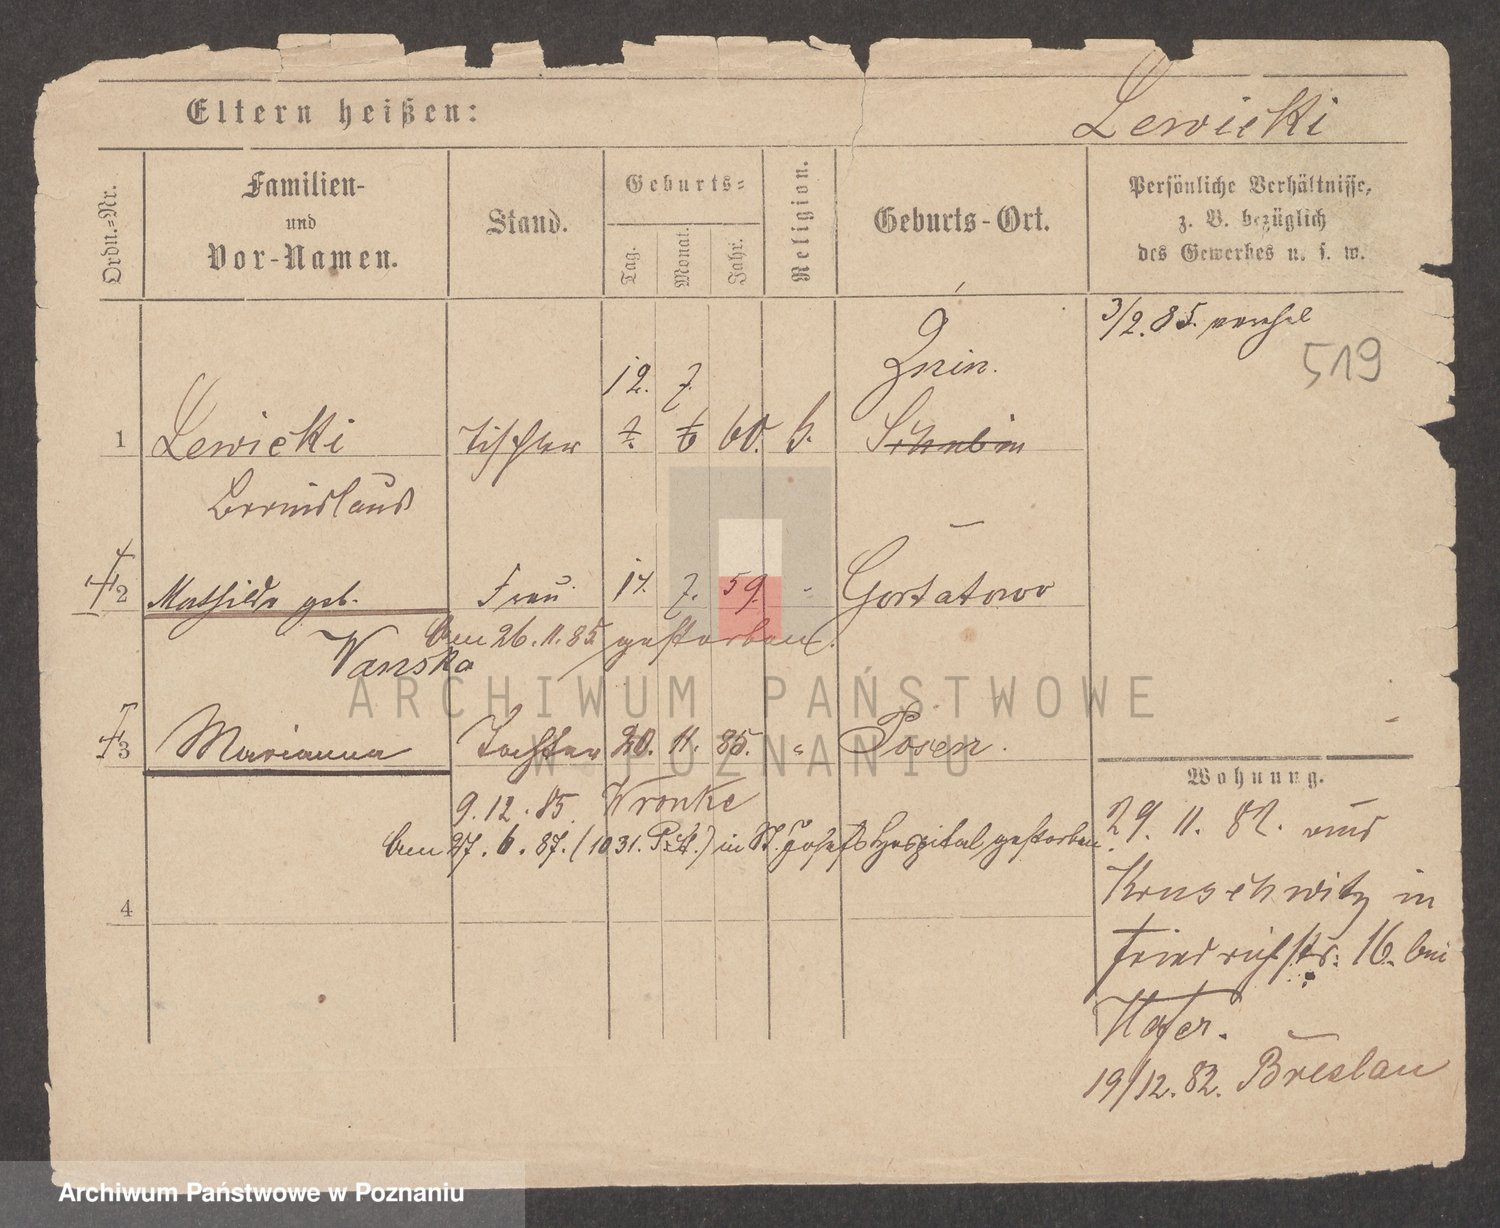 Eltern heißen:
Lewicki
Ordn.=Nr.
Familien-
und
Vor-Namen.
Stand.
Geburts=
Tag.
Monat.
Jahr.
Religion.
Geburts-Ort.
Persönliche Verhältnisse,
z. B. bezüglich
des Gewerbes u. s. w.
3/2. 85.
519
12. 7. Znin.
1 Lewicki Tischler 7. 6 60. k. Schubin
2 Mathilde geb. Frau 17. 7. 59. Gortatowo
Wanska
Am 26. 11. 85 gestorben.
3 Marianna Tochter 20. 11. 85. " Posen.
9. 12. 85. Wronke
Am 27. 6. 87. (1031. ) in St. Josefs Hospital gestorben.
4
Wohnung.
29. 11. 82. aus
Kruschwitz in
Friedrichstr. 16. bei
Hofer.
19/12. 82. Breslau
ARCHIWUM PAŃSTWOWE
W POZNANIU
Archiwum Państwowe w Poznaniu